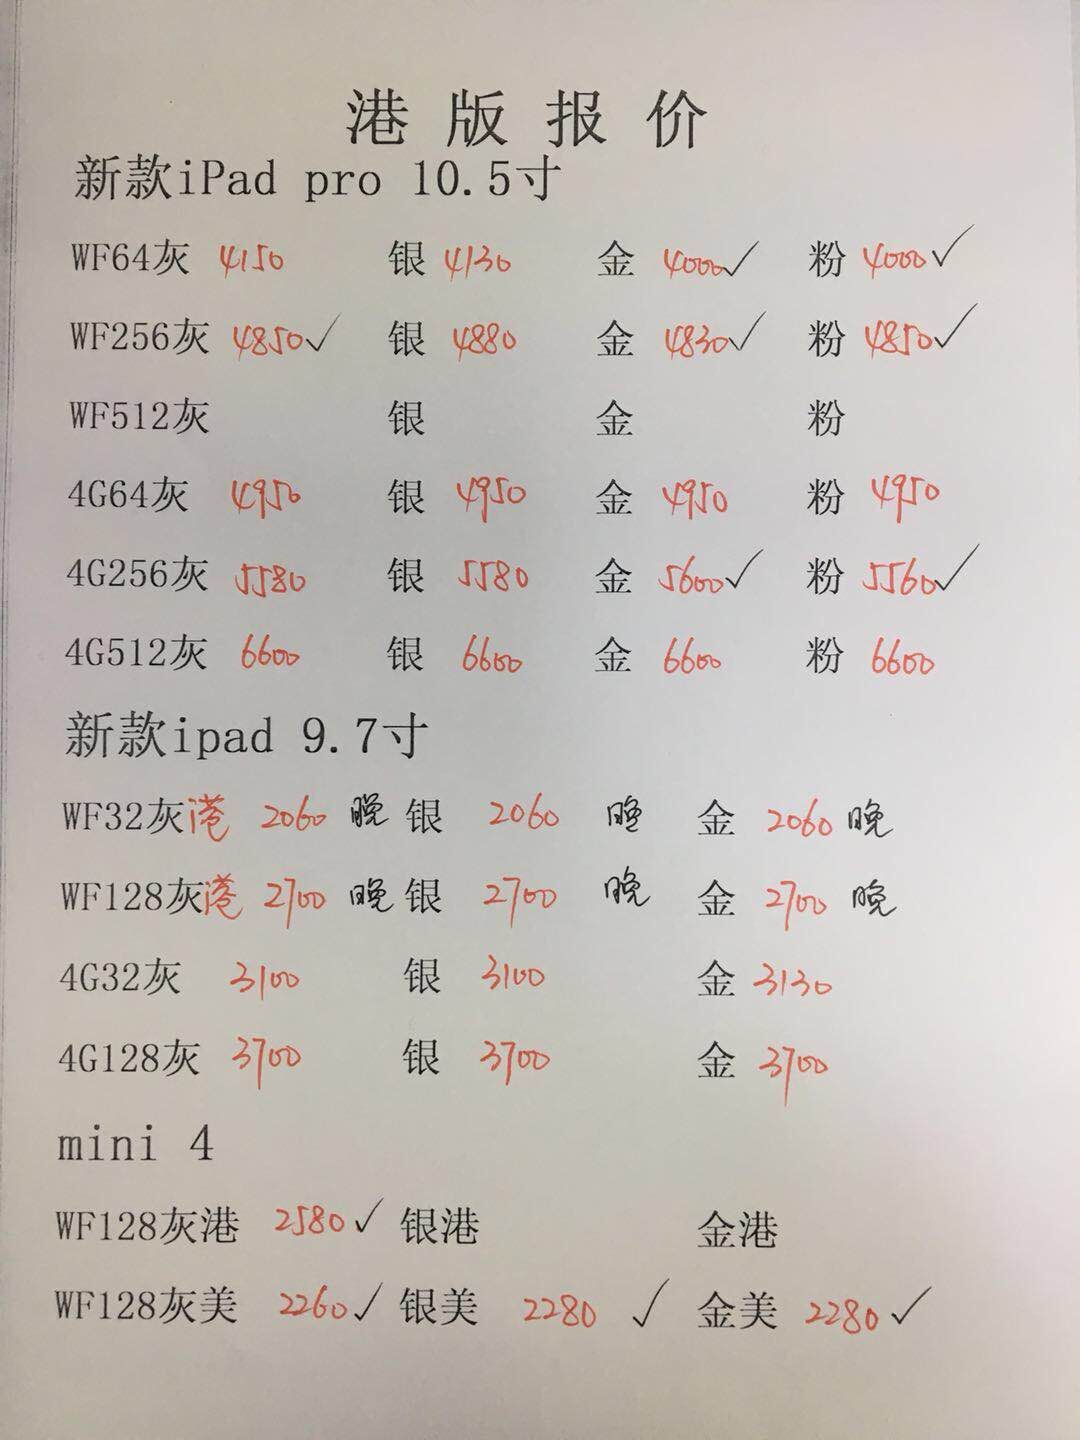 港版报价
新款iPad pro 10.5寸
WF64灰 4150 银 4130 金 4000✓ 粉 4000✓
WF256灰 4850✓ 银 4880 金 4830✓ 粉 4850✓
WF512灰 银 金 粉
4G64灰 4950 银 4950 金 4950 粉 4950
4G256灰 5580 银 5580 金 5600✓ 粉 5560✓
4G512灰 6600 银 6600 金 6600 粉 6600
新款ipad 9.7寸
WF32灰港 2060 晚 银 2060 晚 金 2060 晚
WF128灰港 2700 晚 银 2700 晚 金 2700 晚
4G32灰 3100 银 3100 金 3130
4G128灰 3700 银 3700 金 3700
mini 4
WF128灰港 2580✓ 银港 金港
WF128灰美 2260✓ 银美 2280 ✓ 金美 2280✓